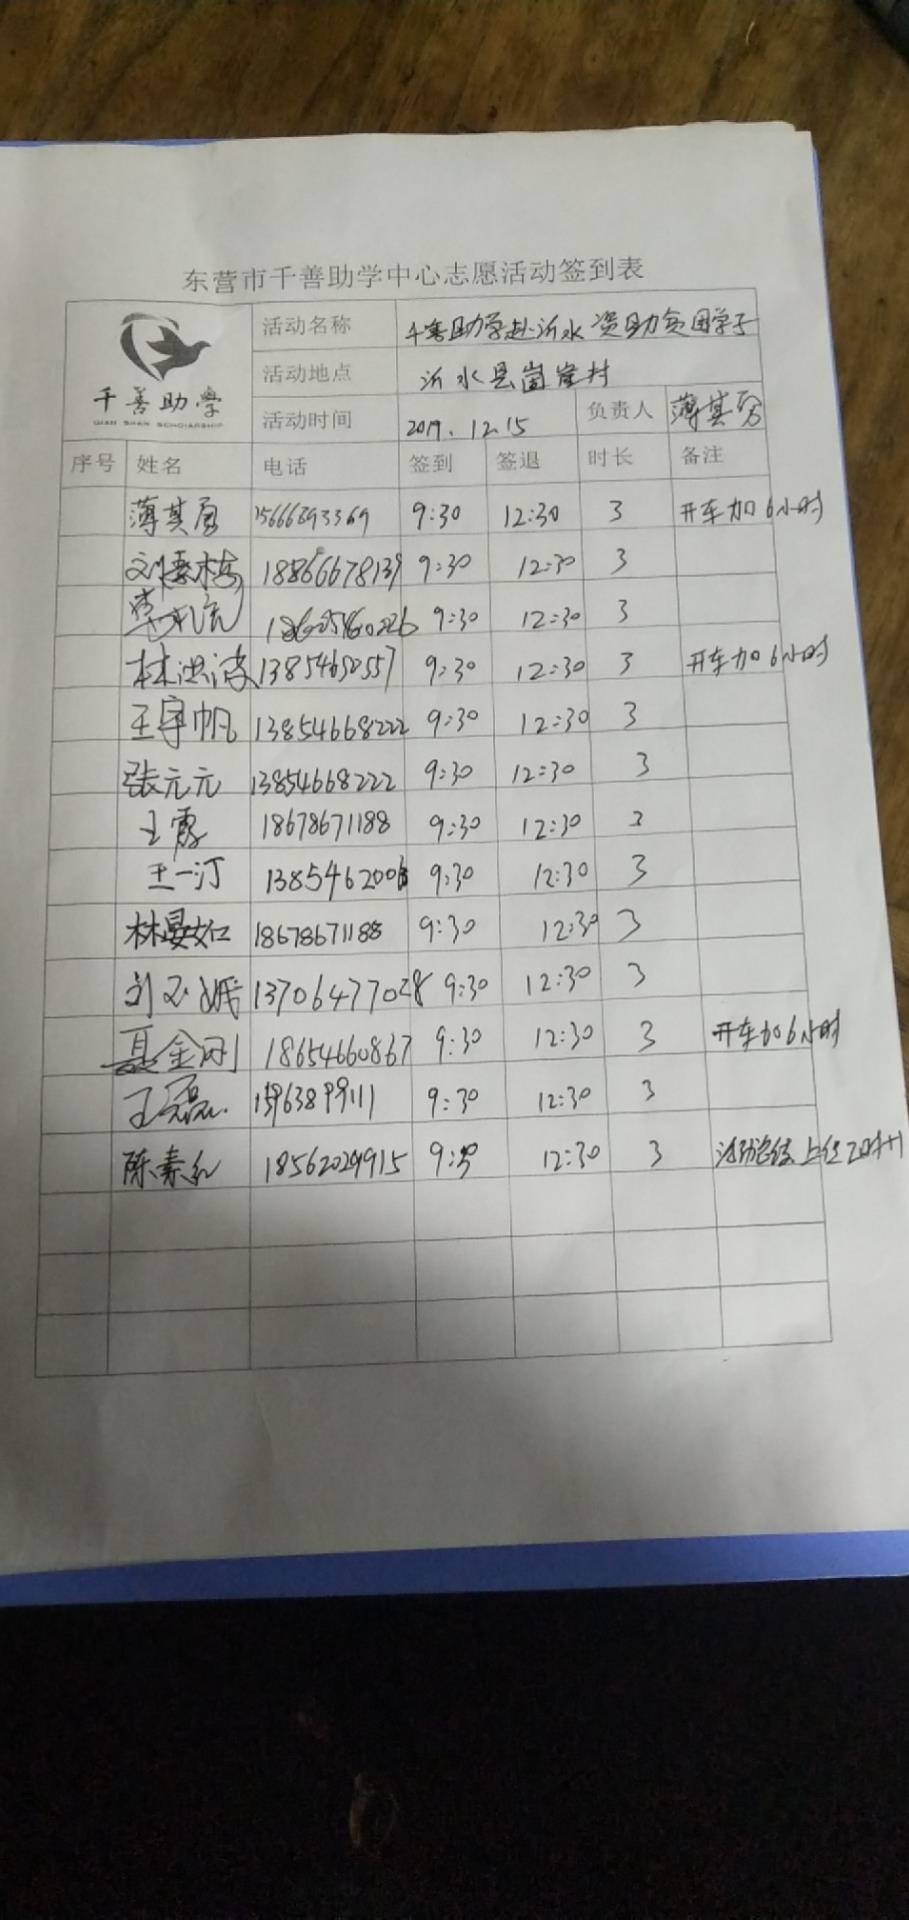 东营市千善助学中心志愿活动签到表
千善助学
QIAN SHAN SCHOLARSHIP
活动名称 千善助学赴沂水资助贫困学子
活动地点 沂水县崮崖村
活动时间 2019.12.15 负责人 薄其
序号 姓名 电话 签到 签退 时长 备注
薄其 15666893369 9:30 12:30 3 开车加6小时
刘 18866678139 9:30 12:30 3
9:30 12:30 3
林洪波 13854650557 9:30 12:30 3 开车加6小时
王宇帆 13854668222 9:30 12:30 3
张元元 13854668222 9:30 12:30 3
王霞 18678671188 9:30 12:30 3
王一汀 1385462006 9:30 12:30 3
林晏如 18678671188 9:30 12:30 3
刘玉娥 13706477028 9:30 12:30 3
聂金刚 18654660867 9:30 12:30 3 开车加6小时
王磊 15963899111 9:30 12:30 3
陈素红 18562029915 9:30 12:30 3